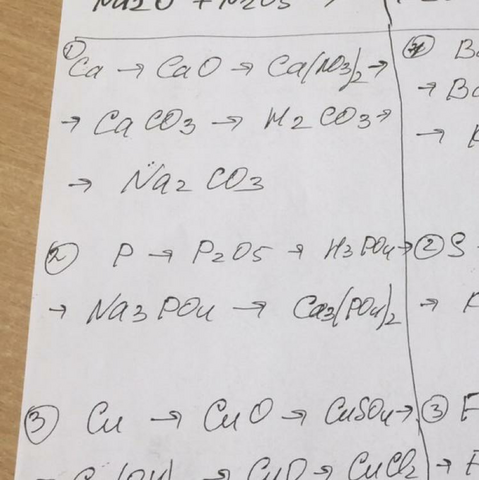 Na2O + N2O5
① Ca → CaO → Ca(NO3)2 →
→ CaCO3 → H2CO3 →
→ Na2CO3
② P → P2O5 → H3PO4 →
→ Na3PO4 → Ca3(PO4)2
③ Cu → CuO → CuSO4 →
→ CuO → CuCl2
② S
→
③ F
→ F